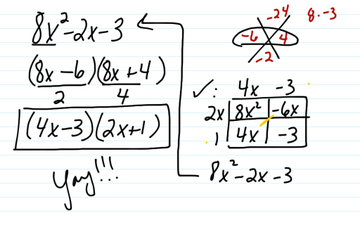 8x² - 2x - 3
(8x - 6)(8x + 4)
2 4
(4x - 3)(2x + 1)
Yay!!!
-24 8 · -3
-6 4
-2
✓: 4x -3
2x 8x² -6x
1 4x -3
8x² - 2x - 3